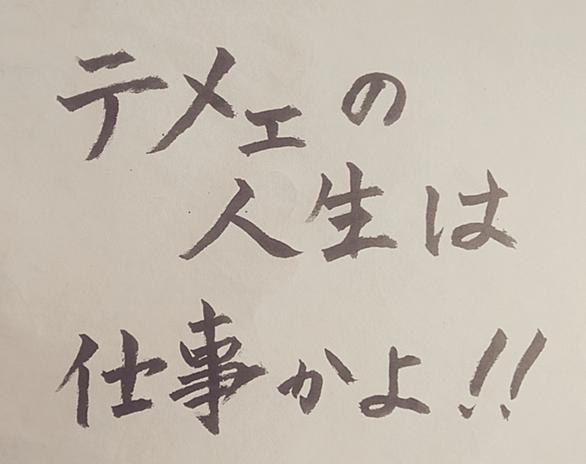 テメェの
人生は
仕事かよ!!